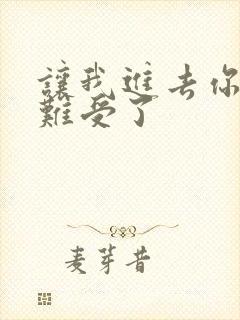 讓我進去你
難受了
麦芽昔